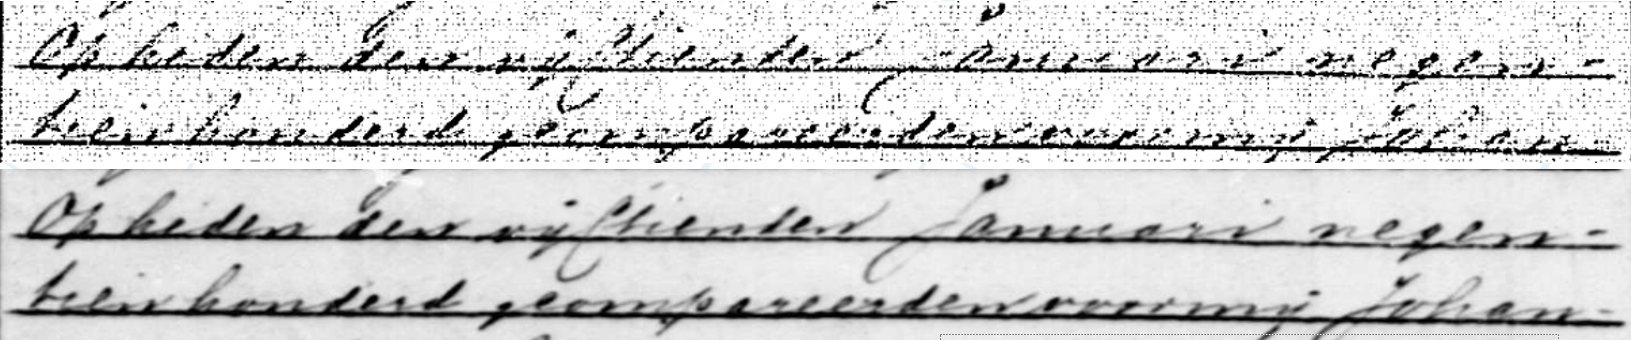 Op heden den vijftienden Januari negen-
tien honderd, compareerden voor mij Johan-
Op heden den vijftienden Januari negen-
tien honderd, compareerden voor mij Johan-